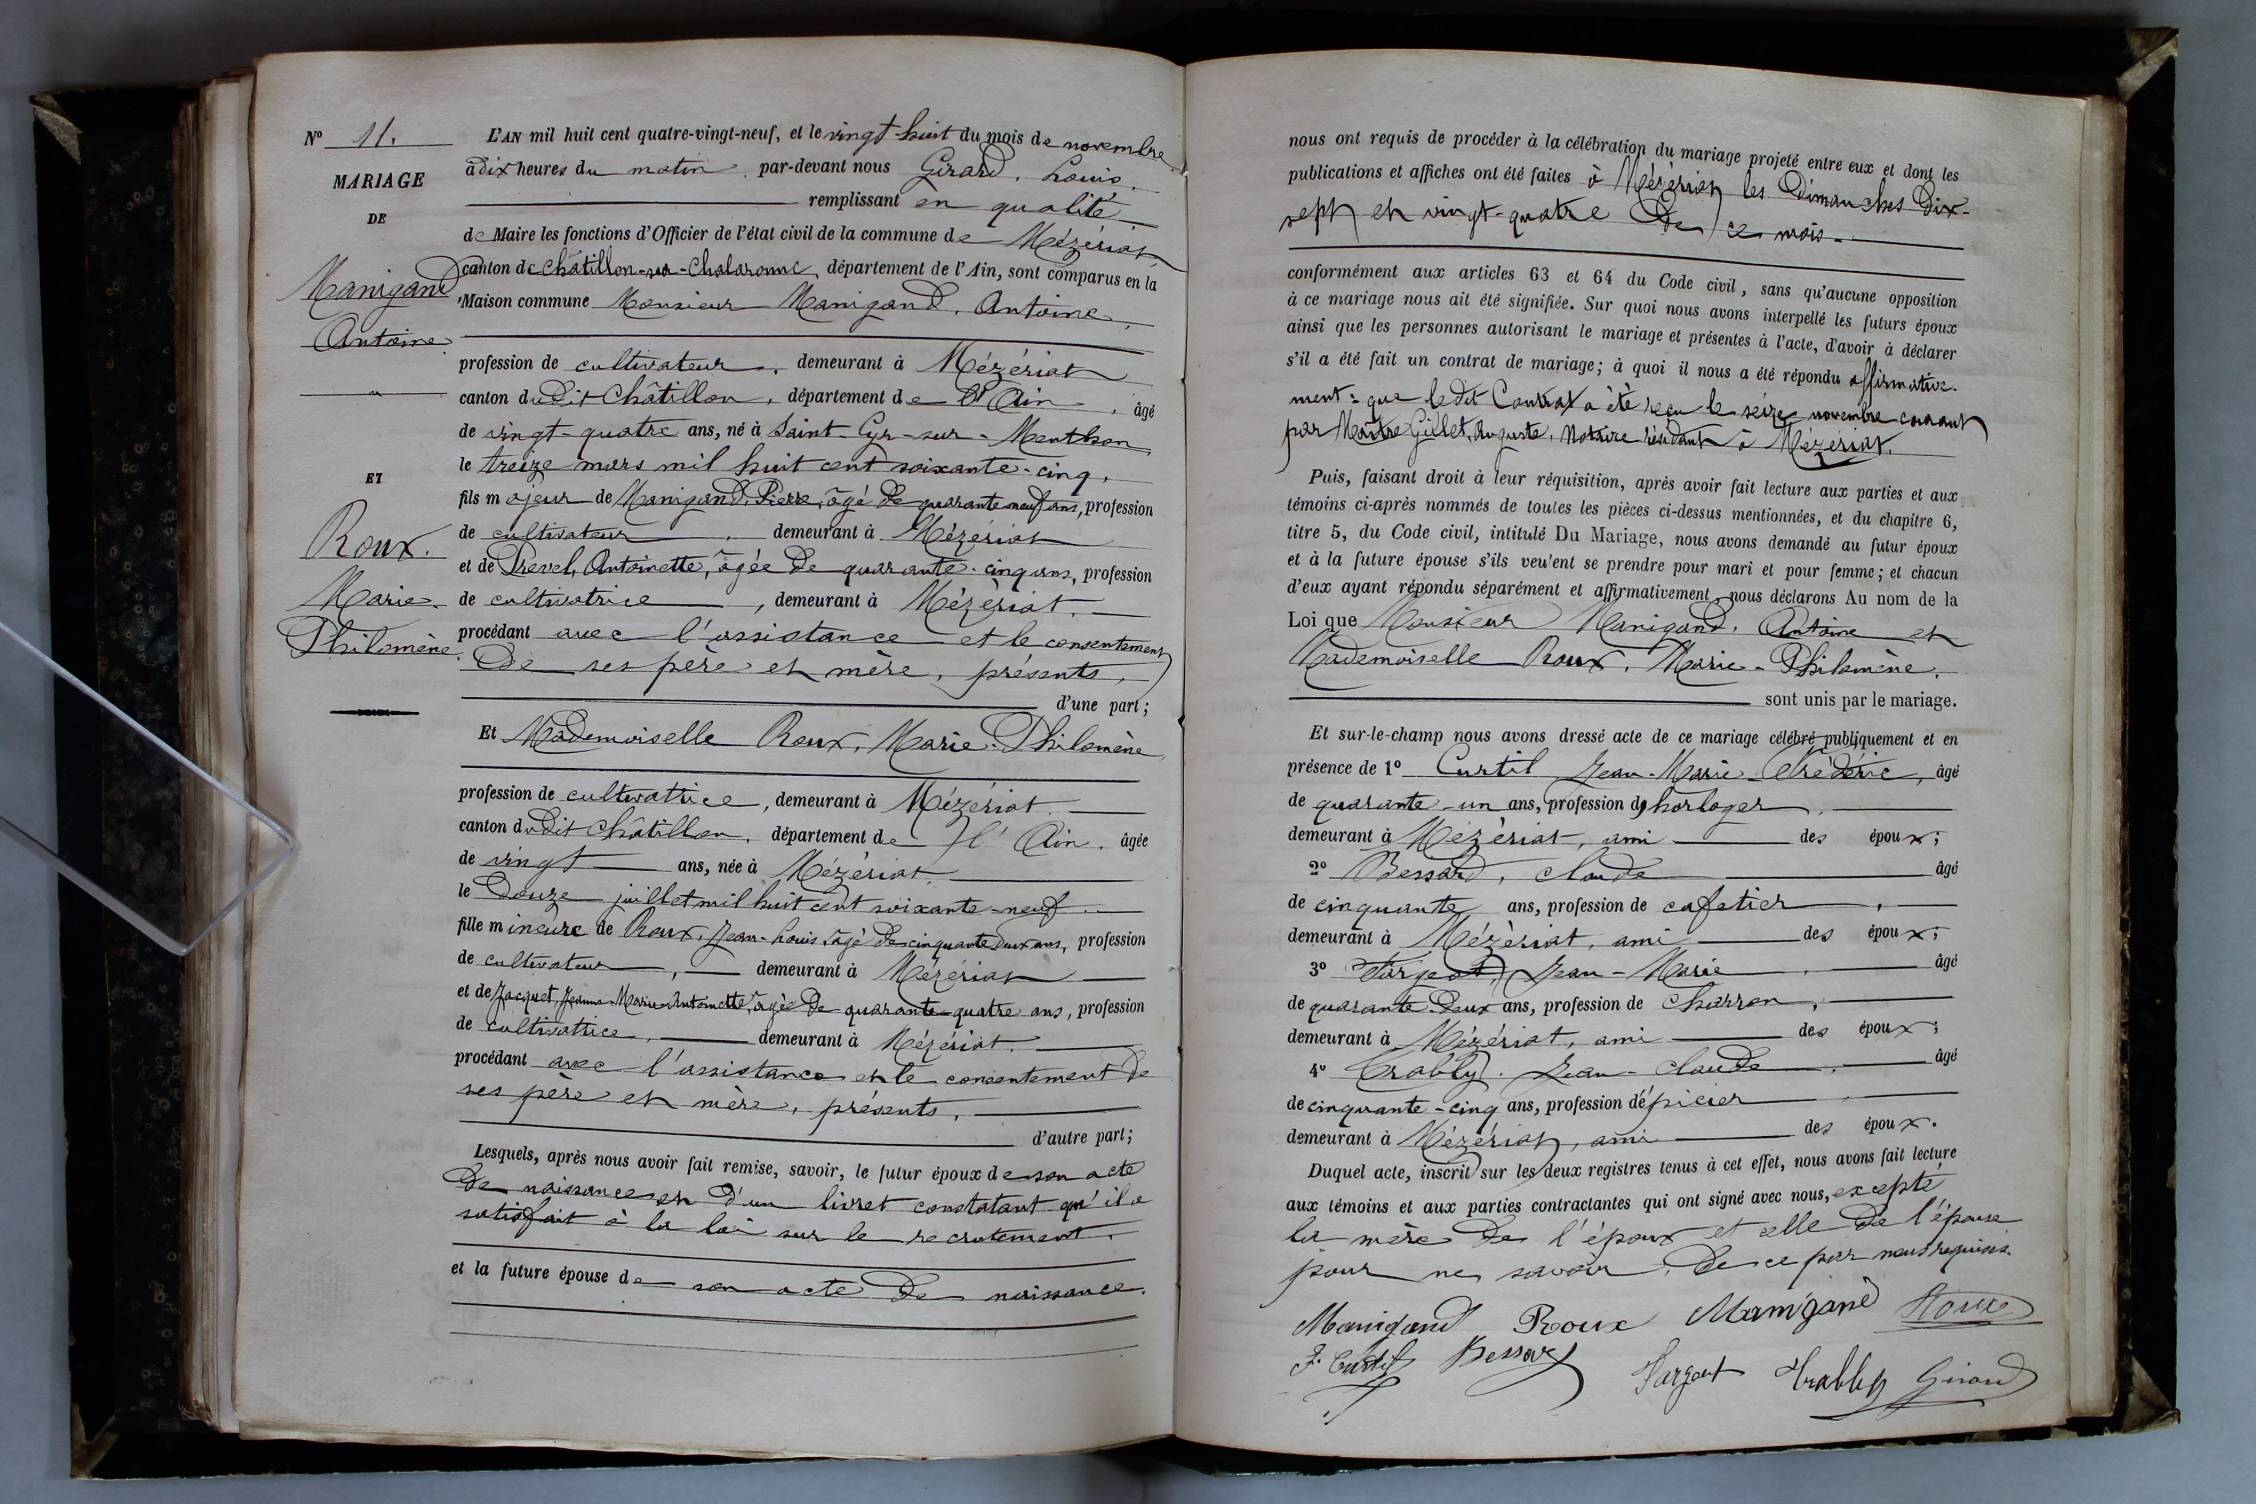 N° 11.
MARIAGE
DE
Manigand
Antoine
ET
Roux.
Marie-
Philomène.
L'AN mil huit cent quatre-vingt-neuf, et le vingt-huit du mois de novembre
à dix heures du matin, par-devant nous Girard, Louis,
remplissant en qualité
de Maire les fonctions d'Officier de l'état civil de la commune de Mézériat,
canton de Châtillon-sur-Chalaronne, département de l'Ain, sont comparus en la
Maison commune Monsieur Manigand, Antoine,
profession de cultivateur, demeurant à Mézériat
canton dudit Châtillon, département de l'Ain, âgé
de vingt-quatre ans, né à Saint-Cyr-sur-Menthon
le treize mars mil huit cent soixante-cinq,
fils majeur de Manigand, Pierre, âgé de quarante neuf ans, profession
de cultivateur, demeurant à Mézériat
et de Prevel, Antoinette, âgée de quarante-cinq ans, profession
de cultivatrice, demeurant à Mézériat.
procédant avec l'assistance et le consentement
de ses père et mère, présents,
d'une part;
Et Mademoiselle Roux, Marie-Philomène
profession de cultivatrice, demeurant à Mézériat.
canton dudit Châtillon, département de l'Ain, âgée
de vingt ans, née à Mézériat,
le douze juillet mil huit cent soixante-neuf.
fille mineure de Roux, Jean-Louis, âgé de cinquante deux ans, profession
de cultivateur, demeurant à Mézériat
et de Jacquet, Jeanne-Marie-Antoinette, âgée de quarante-quatre ans, profession
de cultivatrice, demeurant à Mézériat.
procédant avec l'assistance et le consentement de
ses père et mère, présents,
d'autre part;
Lesquels, après nous avoir fait remise, savoir, le futur époux de son acte
de naissance et d'un livret constatant qu'il a
satisfait à la loi sur le recrutement.
et la future épouse de son acte de naissance.
nous ont requis de procéder à la célébration du mariage projeté entre eux et dont les
publications et affiches ont été faites à Mézériat les dimanches dix-
sept et vingt-quatre de ce mois.
conformément aux articles 63 et 64 du Code civil, sans qu'aucune opposition
à ce mariage nous ait été signifiée. Sur quoi nous avons interpellé les futurs époux
ainsi que les personnes autorisant le mariage et présentes à l'acte, d'avoir à déclarer
s'il a été fait un contrat de mariage; à quoi il nous a été répondu affirmative-
ment: que ledit Contrat a été reçu le seize novembre courant
par Maître Gillet, Auguste, Notaire résidant à Mézériat.
Puis, faisant droit à leur réquisition, après avoir fait lecture aux parties et aux
témoins ci-après nommés de toutes les pièces ci-dessus mentionnées, et du chapitre 6,
titre 5, du Code civil, intitulé Du Mariage, nous avons demandé au futur époux
et à la future épouse s'ils veulent se prendre pour mari et pour femme; et chacun
d'eux ayant répondu séparément et affirmativement, nous déclarons Au nom de la
Loi que Monsieur Manigand, Antoine et
Mademoiselle Roux, Marie-Philomène,
sont unis par le mariage.
Et sur-le-champ nous avons dressé acte de ce mariage célébré publiquement et en
présence de 1° Curtil Jean-Marie-Frédéric, âgé
de quarante-un ans, profession d'horloger,
demeurant à Mézériat, ami des époux;
2° Bessard, Claude âgé
de cinquante ans, profession de cafetier,
demeurant à Mézériat, ami des époux;
3° Fargeot, Jean-Marie, âgé
de quarante-deux ans, profession de charron,
demeurant à Mézériat, ami des époux;
4° Trably, Jean-Claude, âgé
de cinquante-cinq ans, profession d'épicier
demeurant à Mézériat, ami des époux.
Duquel acte, inscrit sur les deux registres tenus à cet effet, nous avons fait lecture
aux témoins et aux parties contractantes qui ont signé avec nous, excepté
la mère de l'époux et celle de l'épouse
pour ne savoir, de ce par nous requises.
Manigand Roux Manigand Roux
F. Curtil Bessard Fargeot Trably Girard